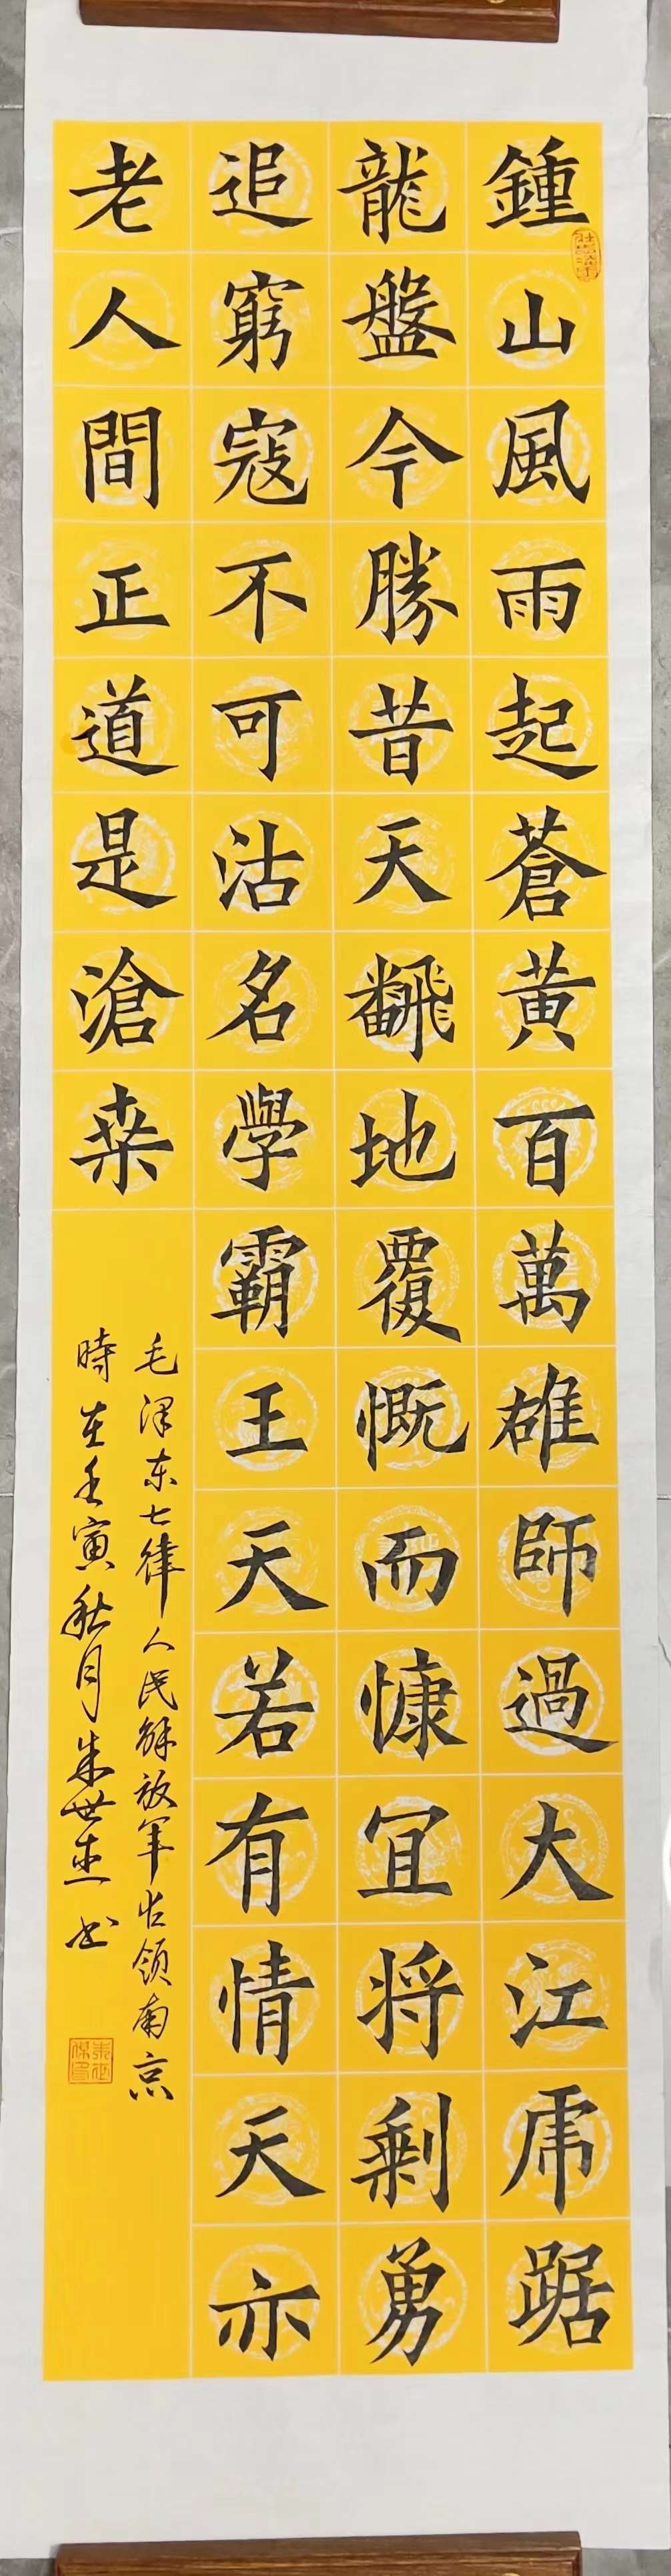 鍾山風雨起蒼黄百萬雄師過大江虎踞
龍盤今勝昔天飜地覆慨而慷宜将剩勇
追窮寇不可沽名學霸王天若有情天亦
老人間正道是滄桒
毛泽东七律人民解放军占领南京
時在壬寅秋月朱世杰书